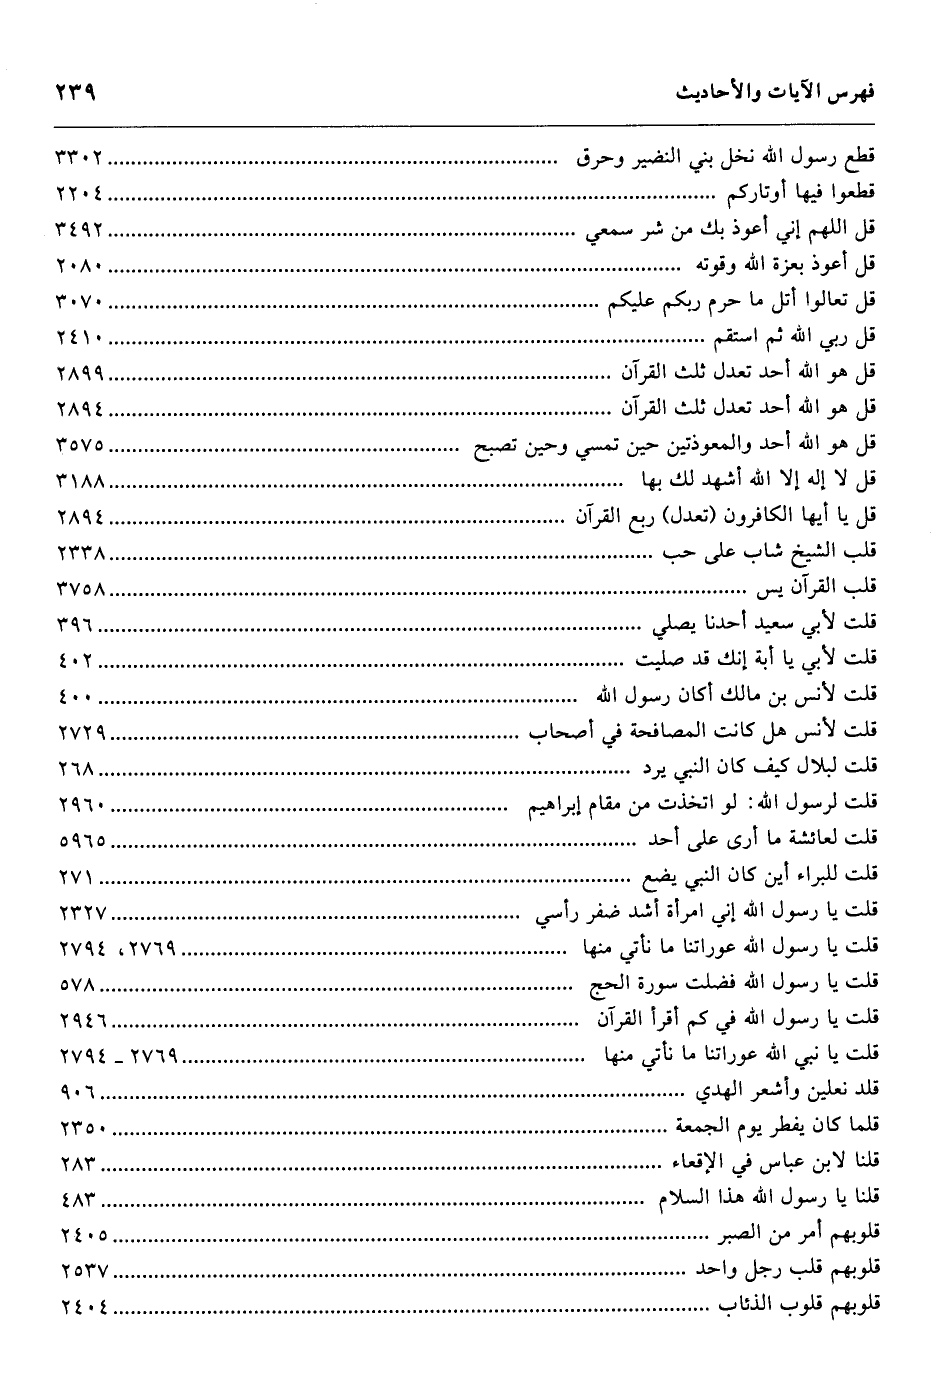 فهرس الآيات والأحاديث ٢٣٩
قطع رسول الله نخل بني النضير وحرق ................ ٣٣٠٢
قطعوا فيها أوتاركم ................ ٢٢٠٤
قل اللهم إني أعوذ بك من شر سمعي ................ ٣٤٩٢
قل أعوذ بعزة الله وقوته ................ ٢٠٨٠
قل تعالوا أتل ما حرم ربكم عليكم ................ ٣٠٧٠
قل ربي الله ثم استقم ................ ٢٤١٠
قل هو الله أحد تعدل ثلث القرآن ................ ٢٨٩٩
قل هو الله أحد تعدل ثلث القرآن ................ ٢٨٩٤
قل هو الله أحد والمعوذتين حين تمسي وحين تصبح ................ ٣٥٧٥
قل لا إله إلا الله أشهد لك بها ................ ٣١٨٨
قل يا أيها الكافرون (تعدل) ربع القرآن ................ ٢٨٩٤
قلب الشيخ شاب على حب ................ ٢٣٣٨
قلب القرآن يس ................ ٣٧٥٨
قلت لأبي سعيد أحدنا يصلي ................ ٣٩٦
قلت لأبي يا أبة إنك قد صليت ................ ٤٠٢
قلت لأنس بن مالك أكان رسول الله ................ ٤٠٠
قلت لأنس هل كانت المصافحة في أصحاب ................ ٢٧٢٩
قلت لبلال كيف كان النبي يرد ................ ٢٦٨
قلت لرسول الله: لو اتخذت من مقام إبراهيم ................ ٢٩٦٠
قلت لعائشة ما أرى على أحد ................ ٥٩٦٥
قلت للبراء أين كان النبي يضع ................ ٢٧١
قلت يا رسول الله إني امرأة أشد ضفر رأسي ................ ٢٣٢٧
قلت يا رسول الله عوراتنا ما نأتي منها ................ ٢٧٦٩، ٢٧٩٤
قلت يا رسول الله فضلت سورة الحج ................ ٥٧٨
قلت يا رسول الله في كم أقرأ القرآن ................ ٢٩٤٦
قلت يا نبي الله عوراتنا ما نأتي منها ................ ٢٧٦٩ ـ ٢٧٩٤
قلد نعلين وأشعر الهدي ................ ٩٠٦
قلما كان يفطر يوم الجمعة ................ ٢٣٥٠
قلنا لابن عباس في الإقعاء ................ ٢٨٣
قلنا يا رسول الله هذا السلام ................ ٤٨٣
قلوبهم أمر من الصبر ................ ٢٤٠٥
قلوبهم قلب رجل واحد ................ ٢٥٣٧
قلوبهم قلوب الذئاب ................ ٢٤٠٤